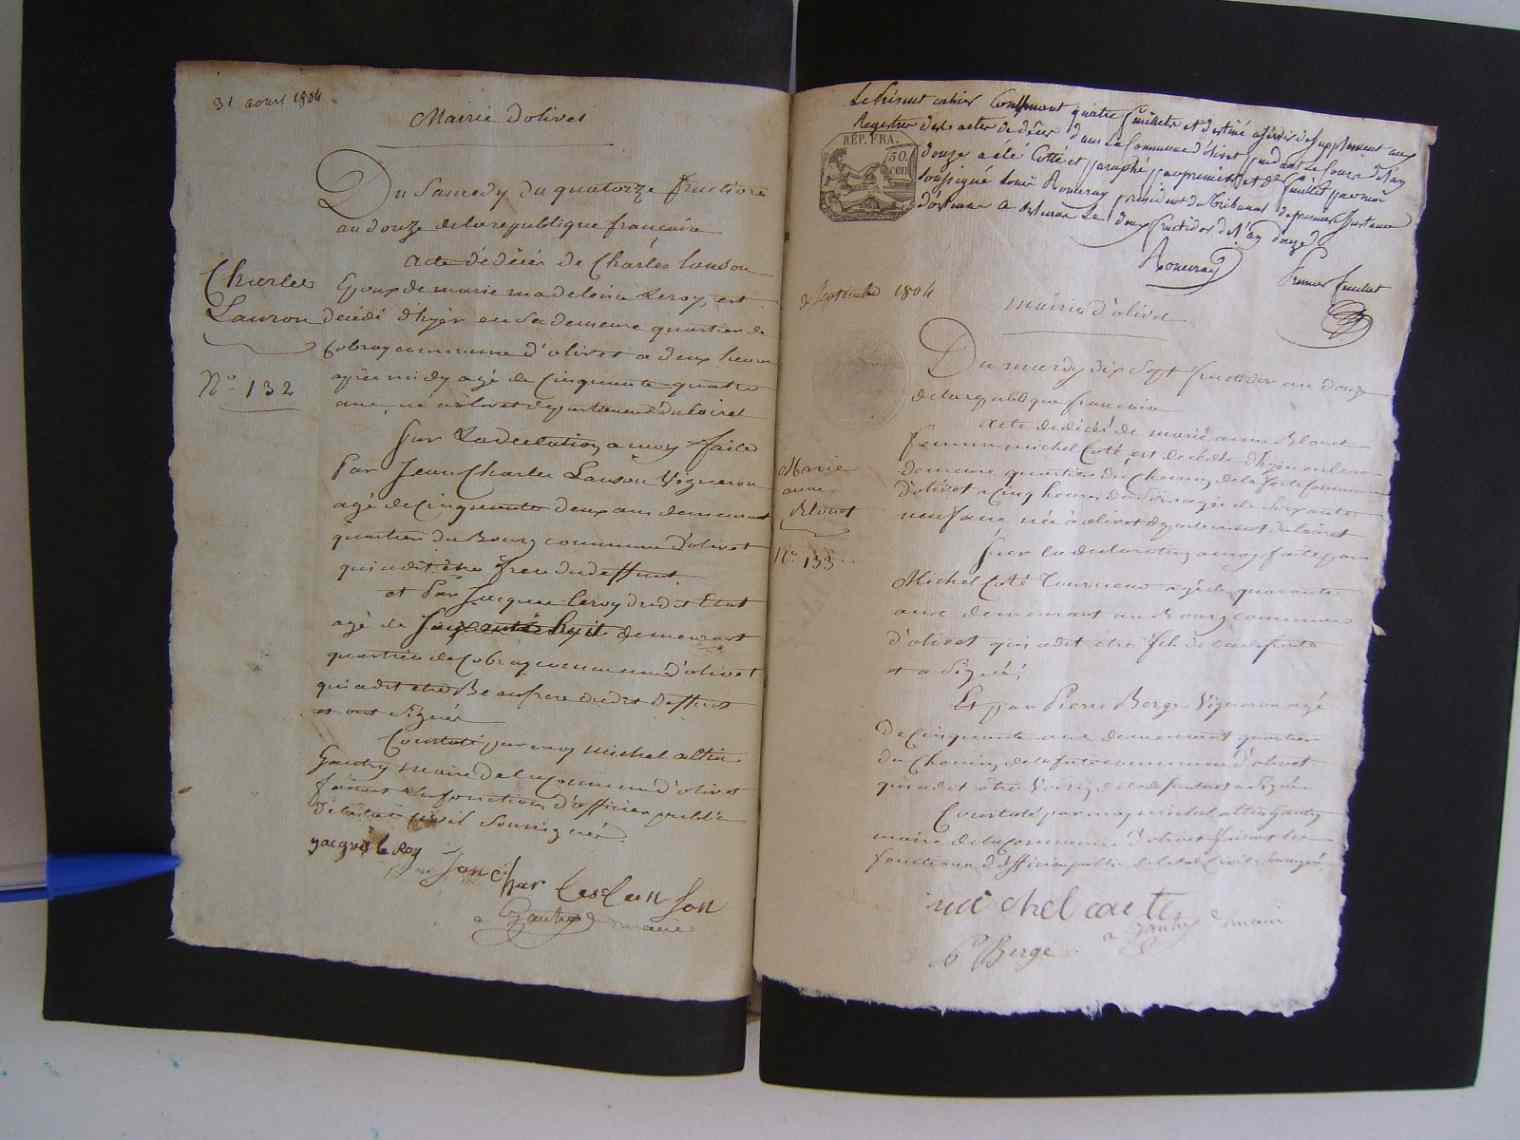 31 aout 1804
Mairie d'olivet
Du Samedy du quatorze fructidor
an douze de la republique française
acte de décès de Charles Lanson
Charles
Lanson
N° 132
Epoux de marie madeleine Leroy, est
décédé d'hyer en sa demeure quartier de
Cobray commune d'olivet a deux heures
après midy agé de Cinquante quatre
ans, né a olivet département du loiret
Sur La declaration a moy faite
Par Jean Charles Lanson Vigneron
agé de Cinquante deux ans demeurant
quartier du Bourg commune d'olivet
qui a dit être frere du deffunt
et Par Jacques Leroy dudit Etat
agé de Soixante huit demeurant
quartier de Cobray commune d'olivet
qui a dit etre Beaufrere dudit deffunt
et ont signé
Constaté par moy michel altin
Gautry maire de la Commune d'olivet
faisant les fonctions d'officier public
de l'état civil Soussigné
jacques le Roy
Jan Char les lan son
Gautry maire
Le présent cahier Contenant quatre feuillets et destiné a servir de Supplement aux
Registres des actes de décès dans La Commune d'olivet pendant le Cours de l'an
douze a été Cotté et paraphé par premier et dr feuillet par nous
Soussigné Louis Romeray président du tribunal de premiere Instance
d'orléans a orléans Le deux fructidor de l'an douze
RÉP. FRA.
50
cen
Romeray
Premier feuillet
4 Septembre 1804
Mairie d'olivet
Du mardy dix Sept fructidor an douze
de la republique française
Marie
anne
Blouet
N° 133
acte de décès de marie anne Blouet
femme michel Coté, est décédée d'hyer en sa
demeure quartier du Champ de la forte Commune
d'olivet a Cinq heures du Soir agée de Soixante
neuf ans, née a olivet département du loiret
Sur la declaration a moy faite par
Michel Coté Tourneur agé de quarante
ans demeurant au Bourg commune
d'olivet qui a dit être fils de la defunte
et a Signé
Et par Pierre Berge Vigneron agé
de Cinquante ans demeurant quartier
du Champ de la forte commune d'olivet
qui a dit être Voisin de la defunte et a Signé
Constaté par moy michel altin Gautry
maire de la Commune d'olivet faisant les
fonctions d'officier public de l'état Civil Soussigné
mi chel cou te
P Berge
Gautry maire